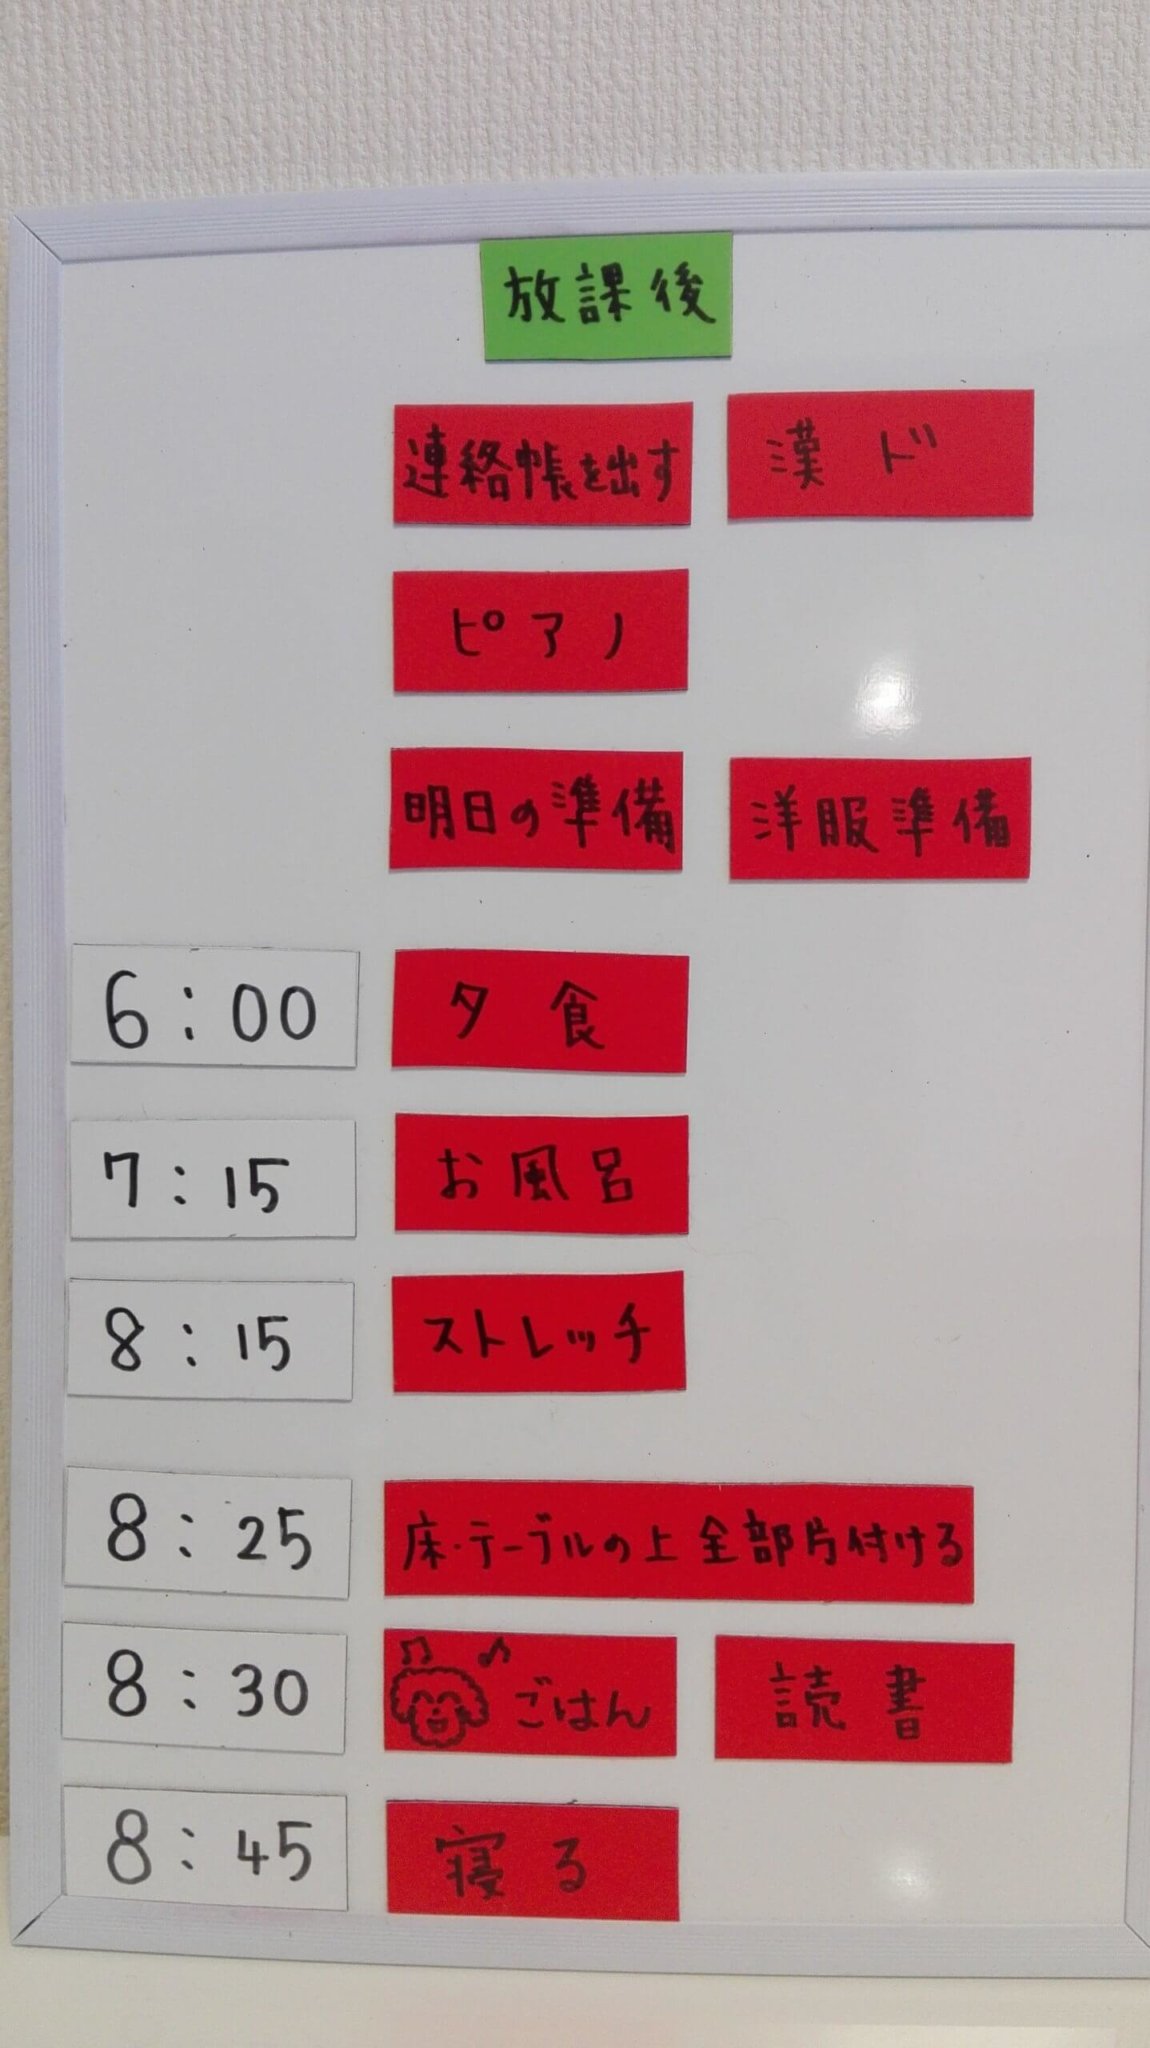 放課後
連絡帳を出す 漢ド
ピアノ
明日の準備 洋服準備
6:00 夕食
7:15 お風呂
8:15 ストレッチ
8:25 床・テーブルの上 全部片付ける
8:30 ごはん 読書
8:45 寝る